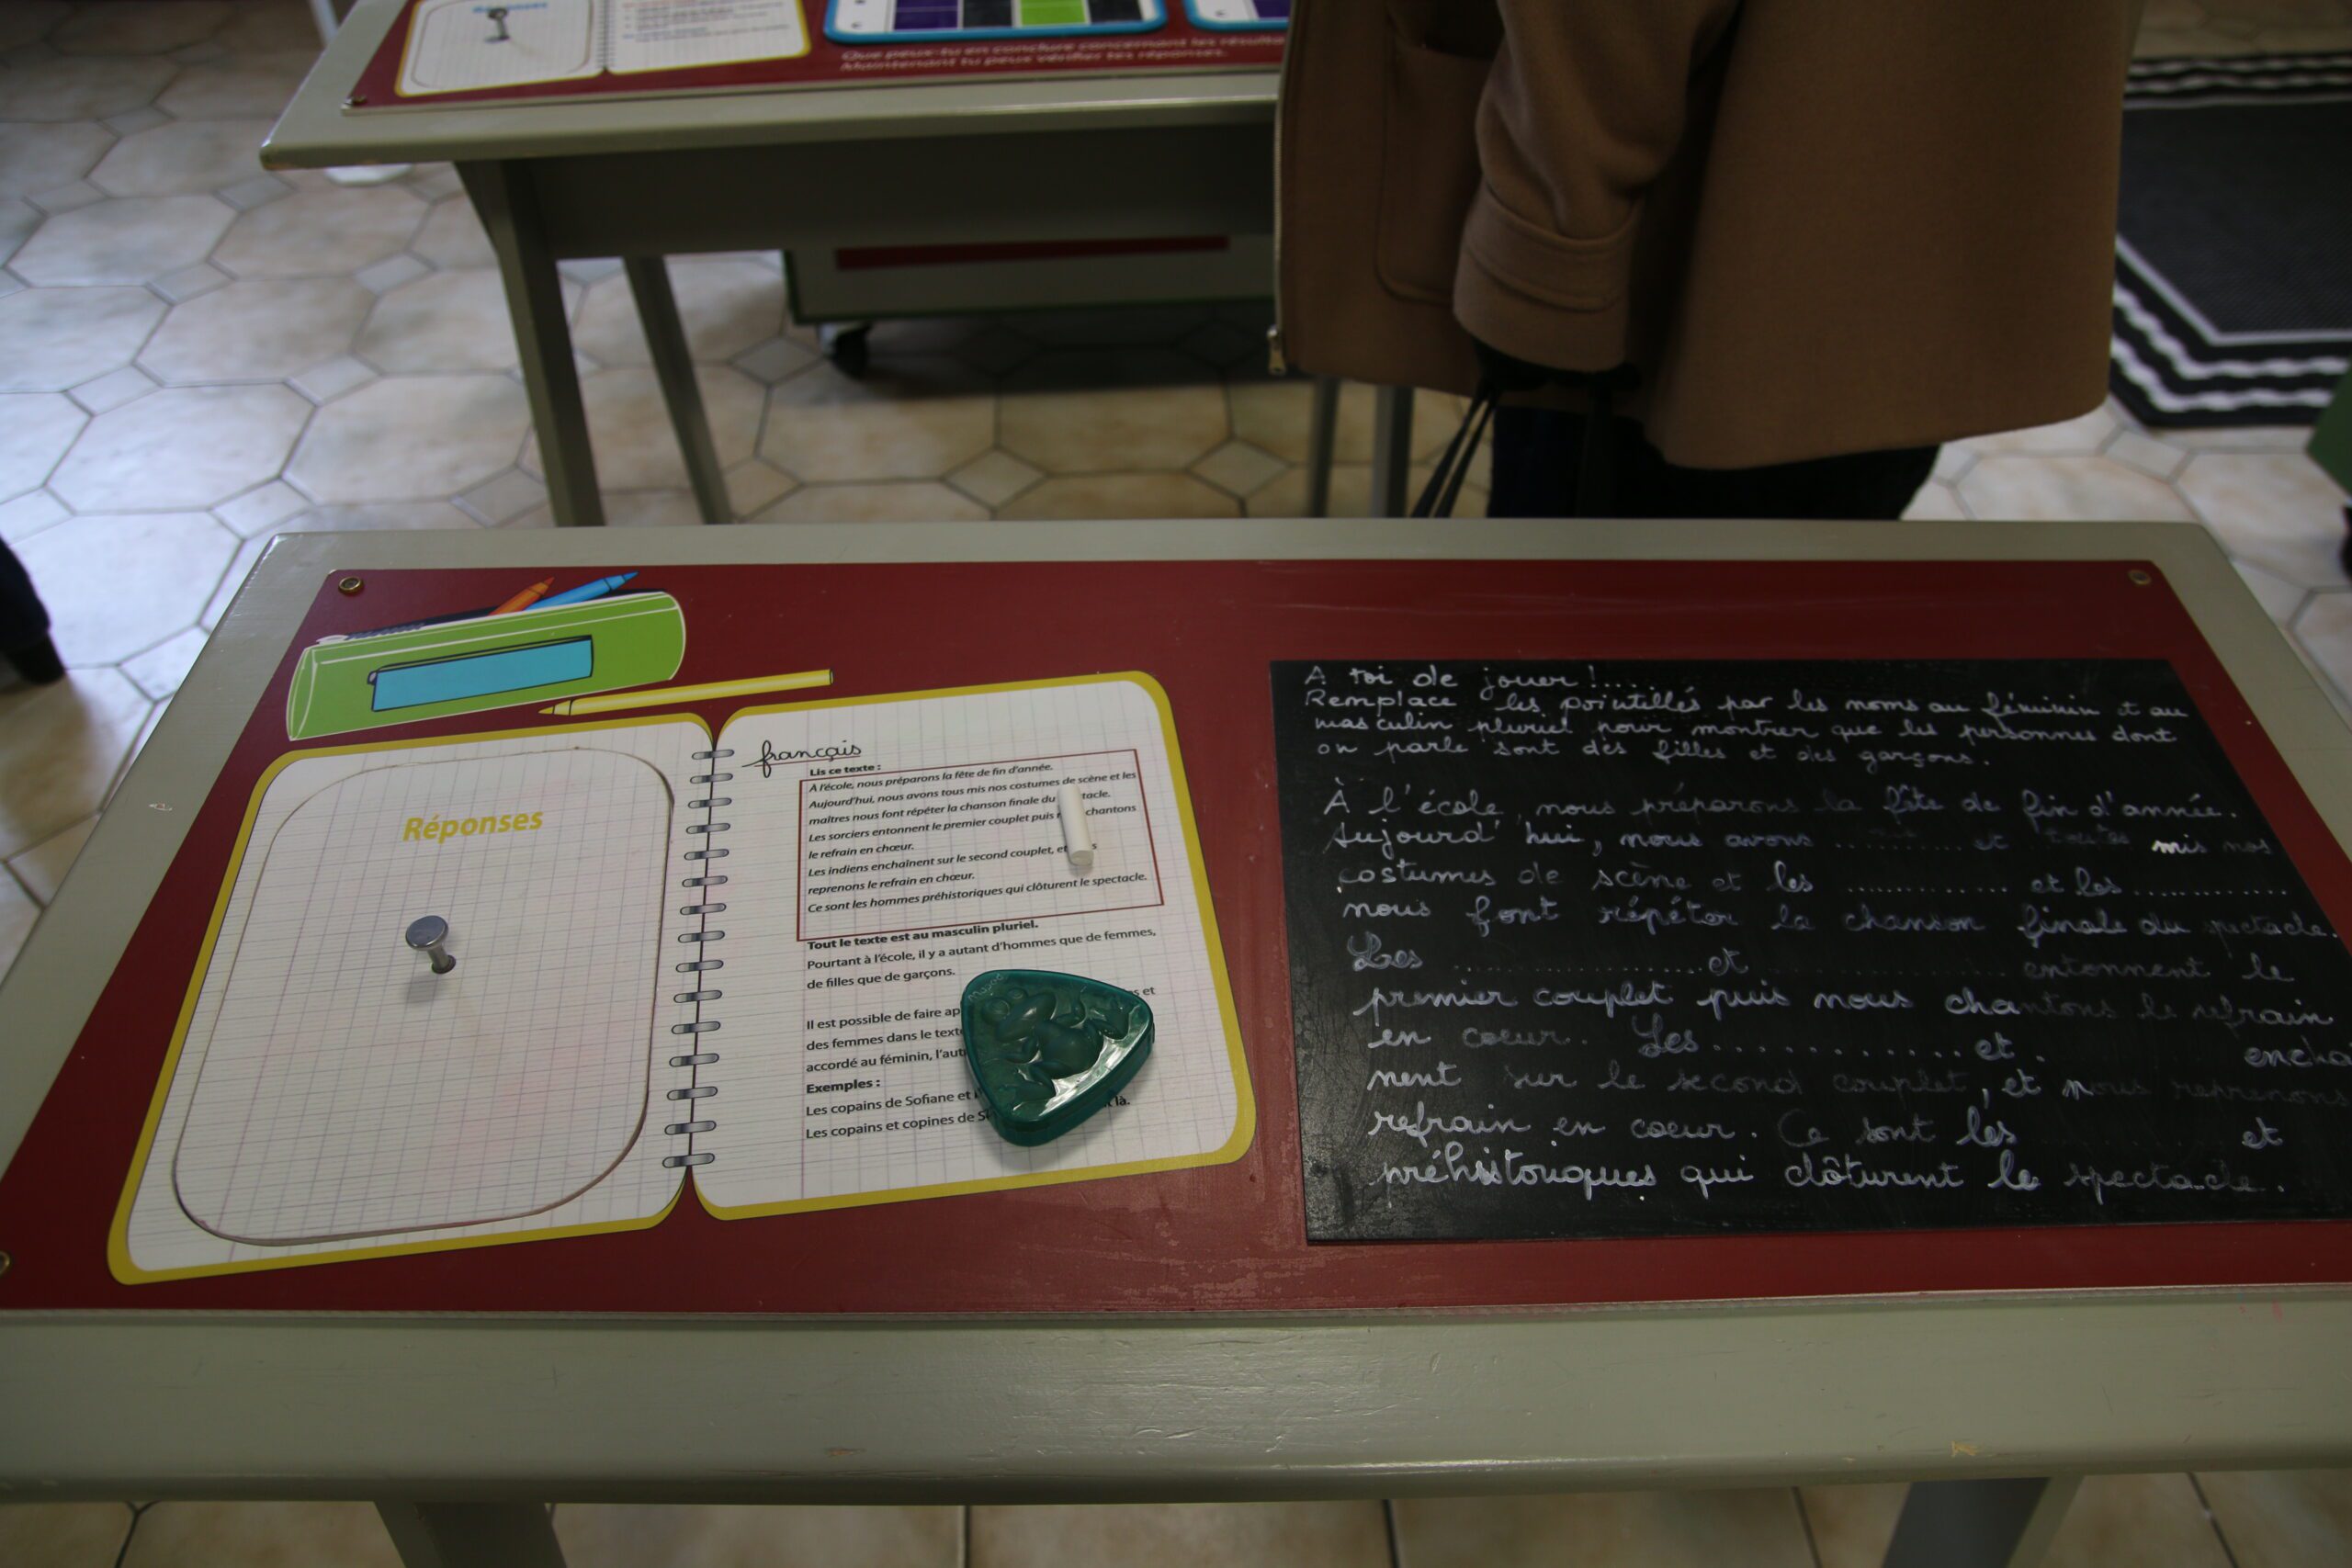 Réponses
Que peux-tu en conclure concernant les
Maintenant tu peux vérifier tes réponses.
Réponses
français
Lis ce texte :
A l'école, nous préparons la fête de fin d'année.
Aujourd'hui, nous avons tous mis nos costumes de scène et les
maîtres nous font répéter la chanson finale du tacle.
Les sorciers entonnent le premier couplet puis chantons
le refrain en chœur.
Les indiens enchaînent sur le second couplet, et
reprenons le refrain en chœur.
Ce sont les hommes préhistoriques qui clôturent le spectacle.
Tout le texte est au masculin pluriel.
Pourtant à l'école, il y a autant d'hommes que de femmes,
de filles que de garçons.
Il est possible de faire et
des femmes dans le texte
accordé au féminin,
Exemples :
Les copains de Sofiane et là.
Les copains et copines de
A toi de jouer !...
Remplace les pointillés par les noms au féminin et au
masculin pluriel pour montrer que les personnes dont
on parle sont des filles et des garçons.
À l'école, nous préparons la fête de fin d'année.
Aujourd'hui, nous avons .......... et toutes mis nos
costumes de scène et les ............ et les ...........
nous font répéter la chanson finale du spectacle.
Les .................... et .................... entonnent le
premier couplet puis nous chantons le refrain
en coeur. Les ............. et . encha
nent sur le second couplet, et nous reprenons
refrain en coeur. Ce sont les et
préhistoriques qui clôturent le spectacle.